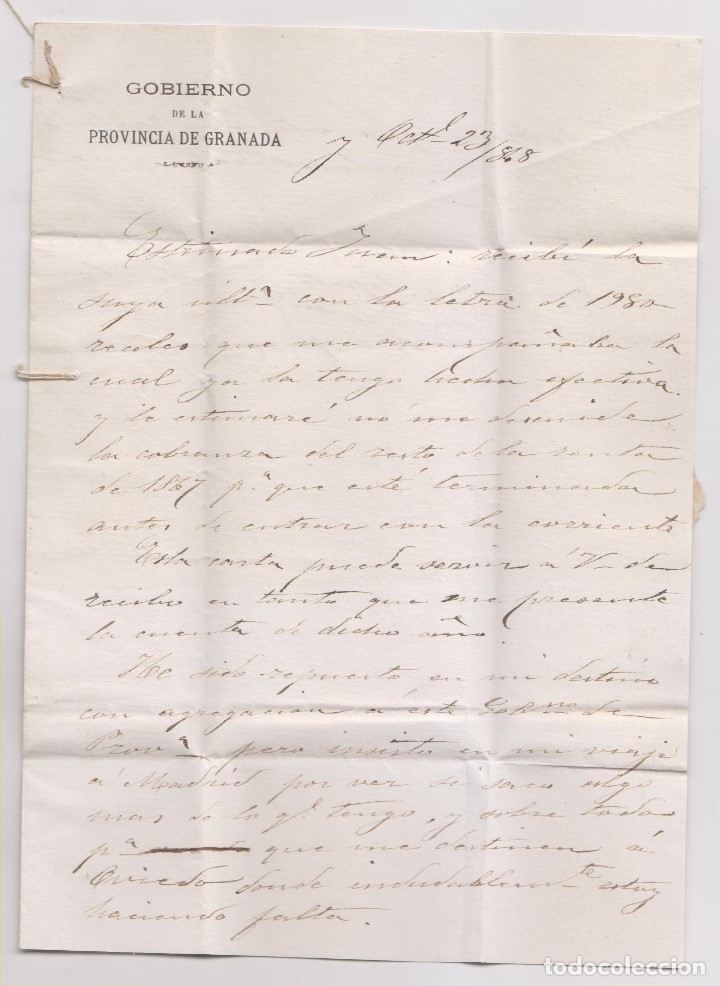 GOBIERNO
DE LA
PROVINCIA DE GRANADA
y Octe. 23/868
Estimado Juan: recibí la
suya ultª con la letra de 1980
reales que me acompañaba la
cual ya la tengo hecha efectiva.
y le estimaré nó me descuide
la cobranza del resto de la renta
de 1867 pª que esté terminada
antes de entrar con la corriente
Esta carta puede servir á V. de
recibo en tanto que me presente
la cuenta de dicho año.
He sido repuesto en mi destino
con agregacion á este Gobno. de
Provª, pero insisto en mi viaje
á Madrid por ver si saco algo
mas de lo q. tengo, y sobre todo
pª que me destinen á
Oviedo donde indudablemte. estoy
haciendo falta.
todocoleccion